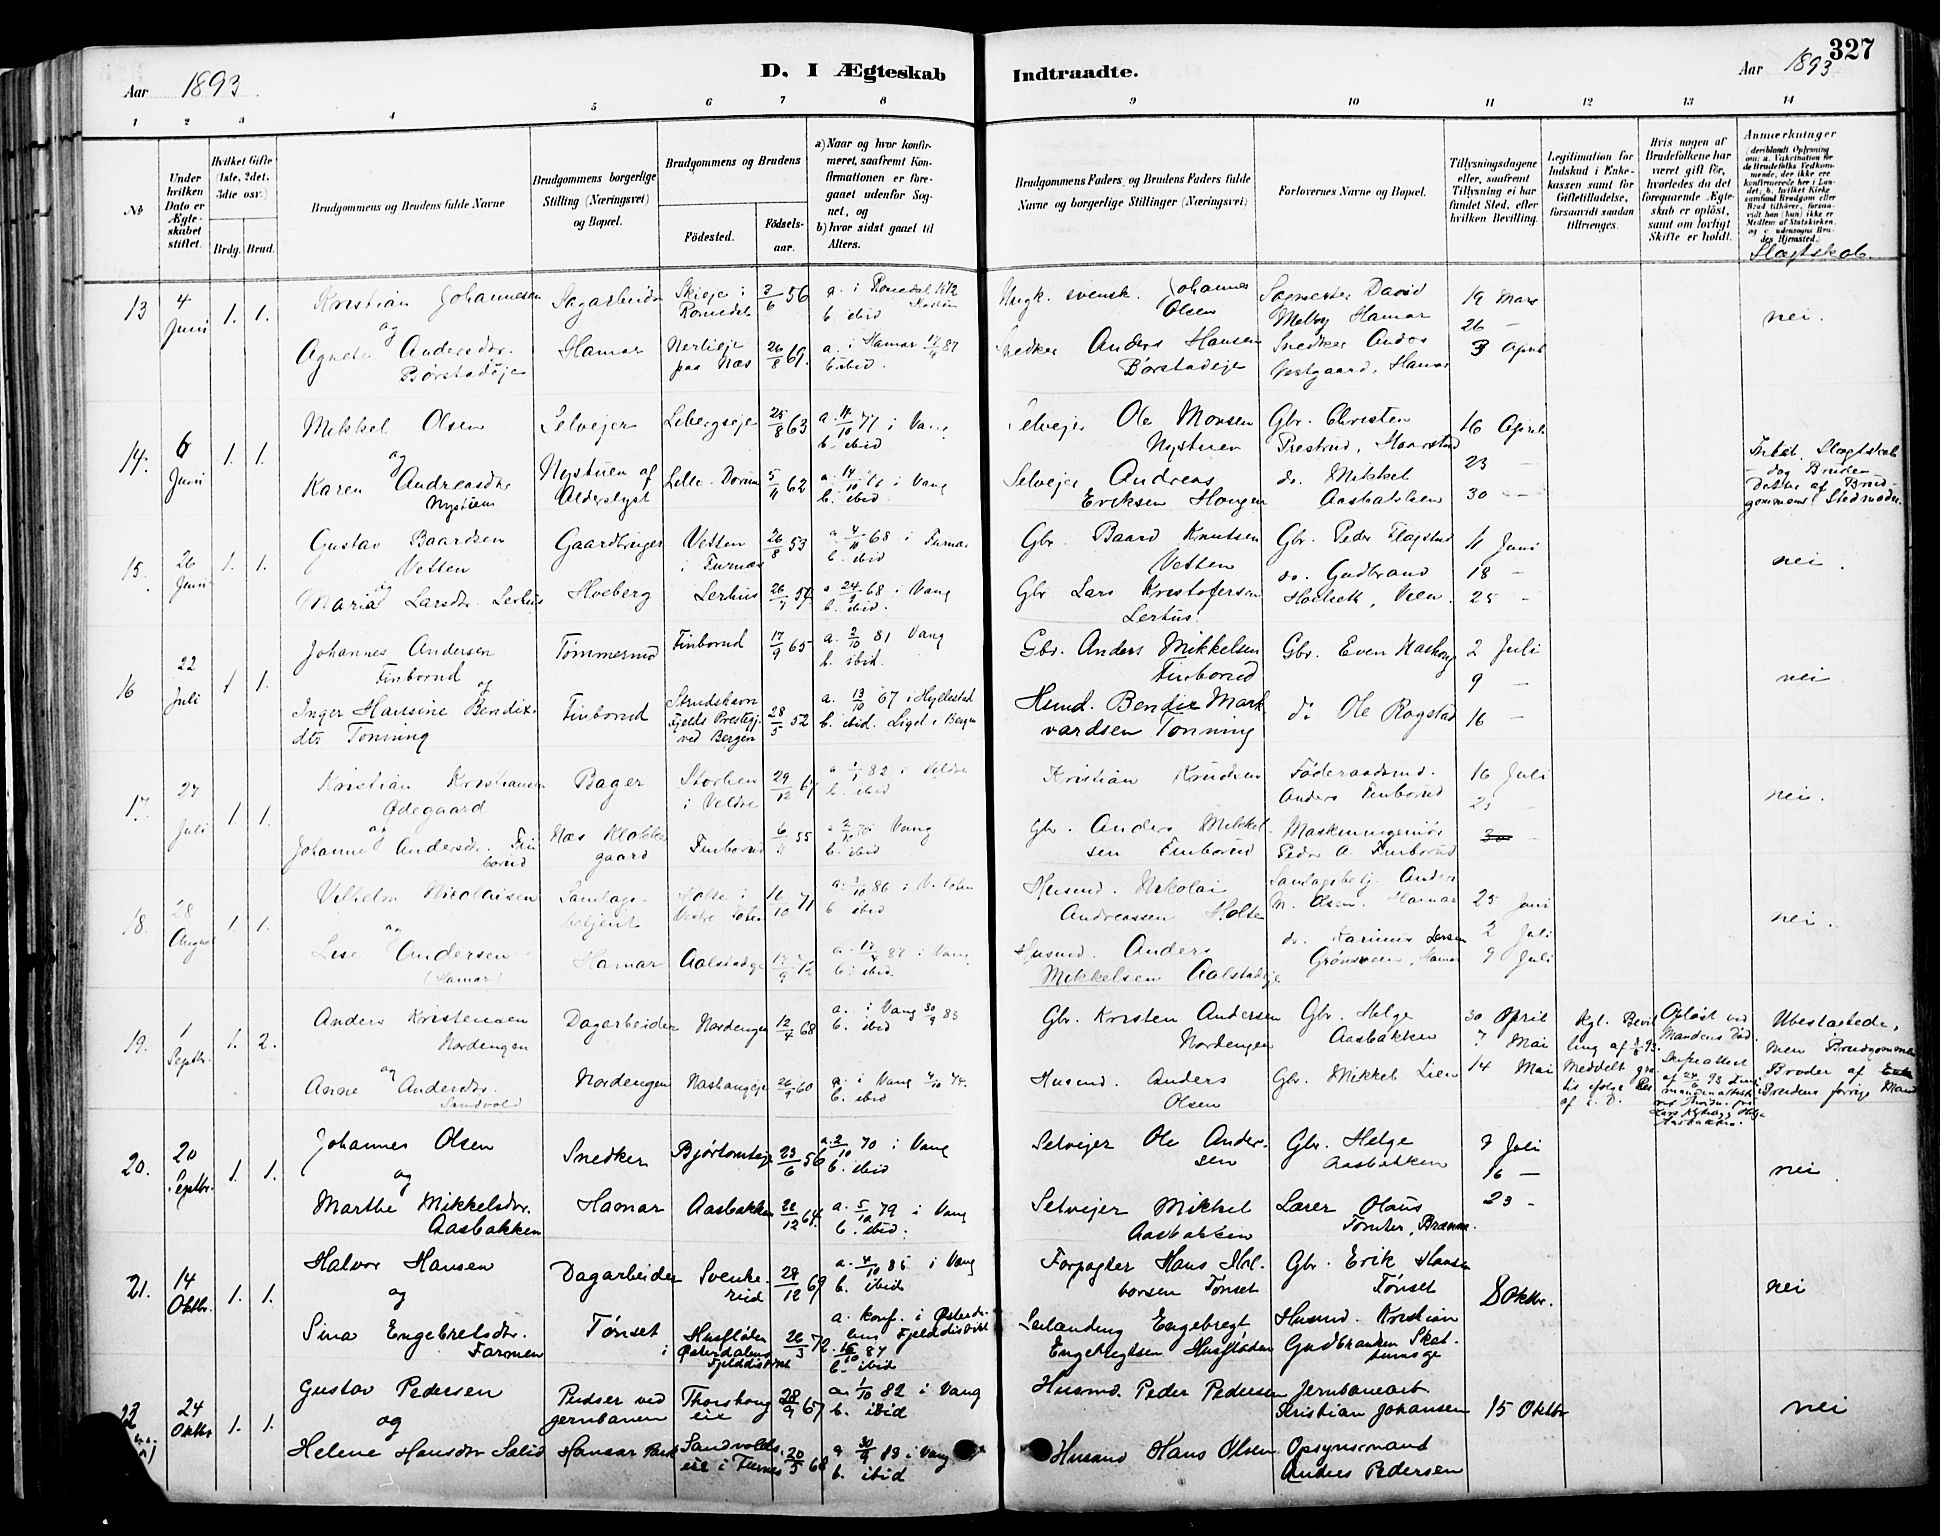 327
Aar 1893.
D. I Ægteskab Indtraadte.
Aar 1893
1 2 3 4 5 6 7 8 9 10 11 12 13 14
No
Under hvilken Dato er Ægteskabet stiftet.
Hvilket Gifte (1ste, 2det, 3die osv.)
Brdg. Brud.
Brudgommens og Brudens fulde Navne
Brudgommens borgerlige Stilling (Næringsvei) og Bopæl.
Brudgommens og Brudens
Fødested.
Fødselsaar.
a) Naar og hvor konfirmeret, saafremt Konfirmationen er foregaaet udenfor Sognet, og
b) hvor sidst gaaet til Alters.
Brudgommens Faders og Brudens Faders fulde Navne og borgerlige Stillinger (Næringsvei)
Forlovernes Navne og Bopæl.
Tillysningsdagene eller, saafremt Tillysning ei har fundet Sted, efter hvilken Bevilling.
Legitimation for Indskud i Enkekassen samt for Giftetilladelse, forsaavidt saadan tiltrænges.
Hvis nogen af Brudefolkene har været gift før, hvorledes da det foregaaende Ægteskab er opløst, samt om lovligt Skifte er holdt.
Anmerkninger
Slægtskab.
13 4 Juni 1. 1.
Kristian Johannesen
og
Agnete Andersdr. Børstadeje
Sagarbeider
Hamar
Skieje i Romedal 56
Nerlieje paa Næs 26/8 69.
b. ibid
a. i Hamar 87
b. ibid.
Ungk. svensk. Johannes Olsen
Snedker Anders Hansen Børstadeje
Sagmester David Melby Hamar
Snedker Vestgaard, Hamar
19 Mars
26 —
3 April
nei.
14. 6 Juni 1. 1.
Mikkel Olsen
og
Karen Andreasdtr Nystuen
Selveier
Nystuen af Alderslyst
Libergseje 25/8 63
62
a. 77 i Vang
b. ibid
a. 14/10 i Vang
b. ibid
Selveier Ole Monsen Nystuen
Selveier Andreas Eriksen Haugen
Gbr. Christen Prestrud,
do. Mikkel Aasbakken
16 April
23 —
30 —
Slægtskab
— dog Bruden
Datter af Brudgommens Stedmoder.
15. 26 Juni 1. 1.
Gustav Baardsen Vetten
og
Maria Larsdtr. Lerhus
Gaardbruger
Hoeberg
Vetten i Furnæs 26/8 53
Lerhus
a. 68 i Furnæs
b. ibid
a. 24/9 68 i Vang
b. ibid.
Gbr. Baard Knutsen Vetten
Gbr. Lars Kristofersen Lerhus.
Gbr. Peder Flagstad
do. Gudbrand
11 Juni
18 —
25 —
nei.
16 22 Juli 1 1.
Johannes Andersen Finborud
og
Inger Hansine Bendixdtr Tonning
Tømmermd
Finborud
Finborud 17/9 65
ved Bergen 28/5 52
a. 2/10 81 Vang
b. ibid.
a. 13/10 67 i Hyllestad
b. ibid. Ligel. i Bergen
Gbr. Anders Mikkelsen Finborud
Husmd. Bendix Markvardsen Tonning
Gbr. Even
do Ole Rogstad
2 Juli
9 —
16 —
nei
17. 27 Juli 1 1.
Kristian Kristiansen Ødegaard
og
Johanne Andersdtr. Finborud
Bager
Næs
Storlien i Veldre 29/12
Finborud 55
82 i Veldre
b. ibid
70 i Vang
b. ibid.
Kristian Knudsen
Gbr. Anders Mikkelsen Finborud
Føderaadsmd. Anders Finborud
Peder A Finborud
16 Juli
23 —
30
nei.
18. 28 August 1. 1.
Vilhelm Nicolaisen
og
Lise Andersen (Hamar)
Hamar
Holte i Vestre Toten 16/10 71
Aalstadeje 72
86 i V. Toten
b. ibid
87 i Vang
b. ibid
Husmd. Nikolai Andreassen Holte
Husmd. Anders Mikkelsen Aalstadeje
M. Olsen. Hamar
do. Karinius Larsen Hamar
25 Juni
2 Juli
9 Juli
nei.
19. 1 Septbr. 1. 2.
Anders Kristensen Nordengen
og
Anne Andersdtr. Sandvold
Dagarbeider
Nordengen
Nordengen 12/4 68
26/9 60
a. i Vang 30/9 83
b. ibid
a. i Vang 4/10 74.
b. ibid.
Gbr. Kristen Andersen Nordengen
Husmd. Anders Olsen
Gbr. Helge Aasbakken
Gbr. Mikkel Lien
30 April
7 Mai
14 Mai
Kgl. Bevilling af
Meddelt gratis ifølge Res af s. D.
Opløst ved Mandens Død.
Helge Aasbakken.
Ubeslægtede, men Brudgommen Broder af Brudens forrige Mand
20. 20 Septbr. 1. 1.
Johannes Olsen
og
Marthe Mikkelsdtr. Aasbakken
Snedker
Hamar
Bjørtomteje 23/6 56
Aasbakken 22/12 64.
a. 2/10 70 i Vang
b. ibid
a. 5/10 79 i Vang
b. ibid.
Selveier Ole Andersen
Selveier Mikkel Aasbakken
Gbr. Helge Aasbakken
Lærer Olaus Tomter,
9 Juli
16 —
23 —
nei
21. 14 Oktbr. 1. 1.
Halvor Hansen
og
Sina Engebretsdtr. Farmen
Dagarbeider
Tønset
Svenkerud 28/12 69
Husfloten i Østerdalens Fjelddistrikt 26/3 72
a. 4/10 85 i Vang
b. ibid
a. konf. i Østerdalens Fjelddistrikt 16/10 87
b. ibid
Forpagter Hans Halvorsen Tønset
Sælænding Engebregt Engebregtsen Husfloten
Gbr. Erik Hansen Tønset
Husmd. Kristian Gudbransen
8 Oktbr.
nei
22 24 Oktbr 1. 1.
Gustav Pedersen
og
Helene Hansdtr Sælid
Pudser ved Jernbanen
Hamar
Thorshougeie 28/9 67
Sandvoldseie i Furnes 20/5 68
a. 1/10 82 i Vang
b. ibid
a 30/9 83 i Vang
b. ibid
Husmd. Peder Pedersen
Husmd Hans Olsen
Jernbanearb. Kristian Johansen
Opsynsmand Anders Pedersen
15 Oktbr
nei